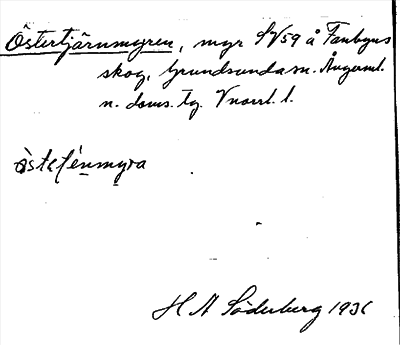 Östertjärnmyren, myr SV59 å Fanbyns
skog, Grundsundasn. Ångerml.
n. doms. tg. Vnorrl. l.
östeʃénmyra
H A Söderberg 1936